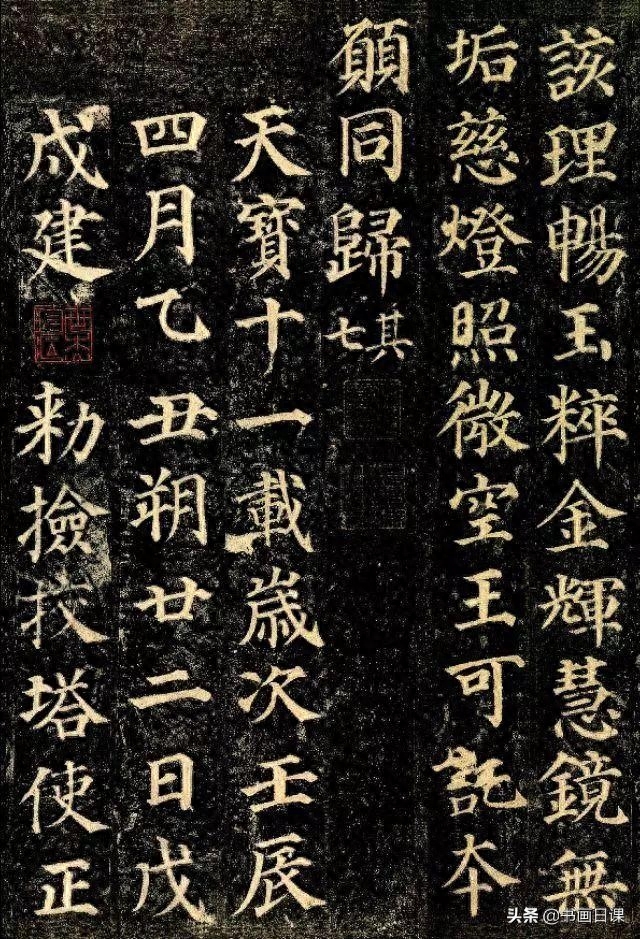 該理暢玉粹金輝慧鏡無
垢慈燈照微空王可託夲
願同歸其七
天寶十一載歲次壬辰
四月乙丑朔廿二日戊
戌建 勑撿挍塔使正
头条 @书画日课